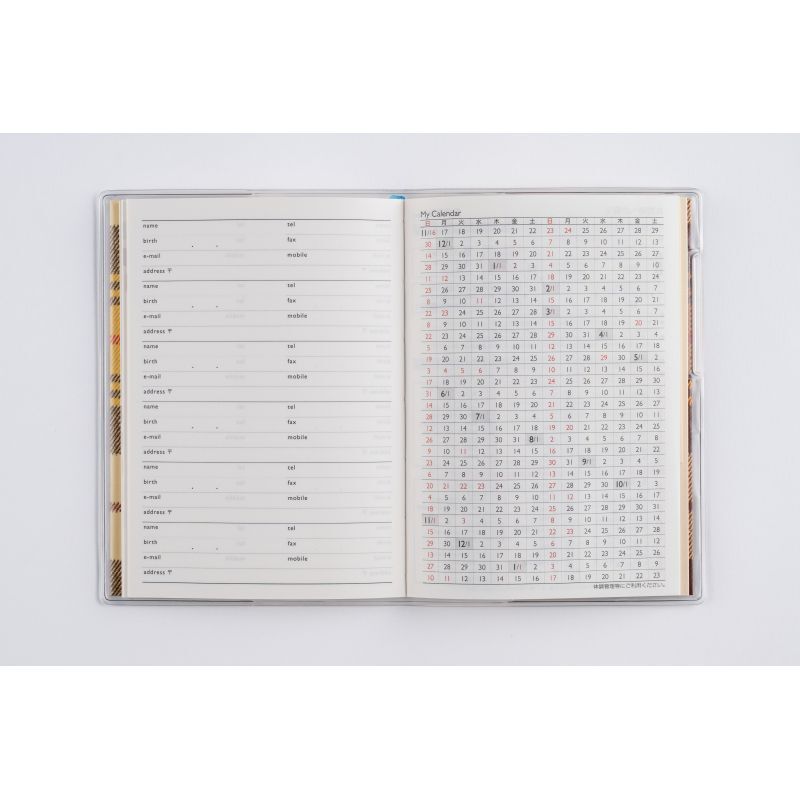 name tel
birth . . fax
e-mail mobile
address 〒
name tel
birth . . fax
e-mail mobile
address 〒
name tel
birth . . fax
e-mail mobile
address 〒
name tel
birth . . fax
e-mail mobile
address 〒
name tel
birth . . fax
e-mail mobile
address 〒
name tel
birth . . fax
e-mail mobile
address 〒
My Calendar
日 月 火 水 木 金 土 日 月 火 水 木 金 土
11/16 17 18 19 20 21 22 23 24 25 26 27 28 29
30 12/1 2 3 4 5 6 7 8 9 10 11 12 13
14 15 16 17 18 19 20 21 22 23 24 25 26 27
28 29 30 31 1/1 2 3 4 5 6 7 8 9 10
11 12 13 14 15 16 17 18 19 20 21 22 23 24
25 26 27 28 29 30 31 2/1 2 3 4 5 6 7
8 9 10 11 12 13 14 15 16 17 18 19 20 21
22 23 24 25 26 27 28 3/1 2 3 4 5 6 7
8 9 10 11 12 13 14 15 16 17 18 19 20 21
22 23 24 25 26 27 28 29 30 31 4/1 2 3 4
5 6 7 8 9 10 11 12 13 14 15 16 17 18
19 20 21 22 23 24 25 26 27 28 29 30 5/1 2
3 4 5 6 7 8 9 10 11 12 13 14 15 16
17 18 19 20 21 22 23 24 25 26 27 28 29 30
31 6/1 2 3 4 5 6 7 8 9 10 11 12 13
14 15 16 17 18 19 20 21 22 23 24 25 26 27
28 29 30 7/1 2 3 4 5 6 7 8 9 10 11
12 13 14 15 16 17 18 19 20 21 22 23 24 25
26 27 28 29 30 31 8/1 2 3 4 5 6 7 8
9 10 11 12 13 14 15 16 17 18 19 20 21 22
23 24 25 26 27 28 29 30 31 9/1 2 3 4 5
6 7 8 9 10 11 12 13 14 15 16 17 18 19
20 21 22 23 24 25 26 27 28 29 30 10/1 2 3
4 5 6 7 8 9 10 11 12 13 14 15 16 17
18 19 20 21 22 23 24 25 26 27 28 29 30 31
11/1 2 3 4 5 6 7 8 9 10 11 12 13 14
15 16 17 18 19 20 21 22 23 24 25 26 27 28
29 30 12/1 2 3 4 5 6 7 8 9 10 11 12
13 14 15 16 17 18 19 20 21 22 23 24 25 26
27 28 29 30 31 1/1 2 3 4 5 6 7 8 9
10 11 12 13 14 15 16 17 18 19 20 21 22 23
体調管理等にご利用ください。